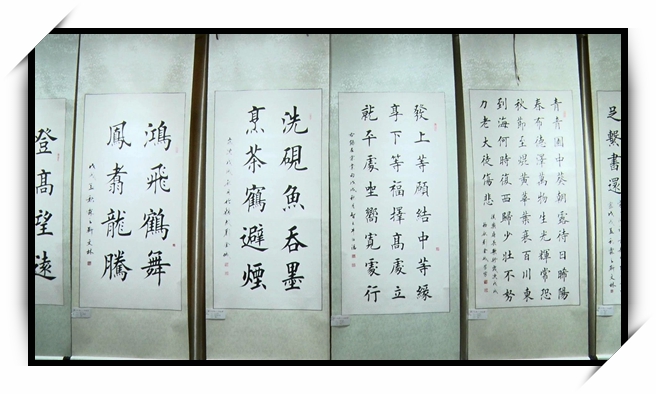 登高望遠
鴻飛鶴舞
鳳翥龍騰
洗硯魚吞墨
烹茶鶴避煙
發上等願結中等緣
享下等福擇高處立
就平處坐嚮寬處行
青青園中葵朝露待日晞陽
春布德澤萬物生光輝常恐
秋節至焜黃華葉衰百川東
到海何時復西歸少壯不努
力老大徒傷悲
足繫書還